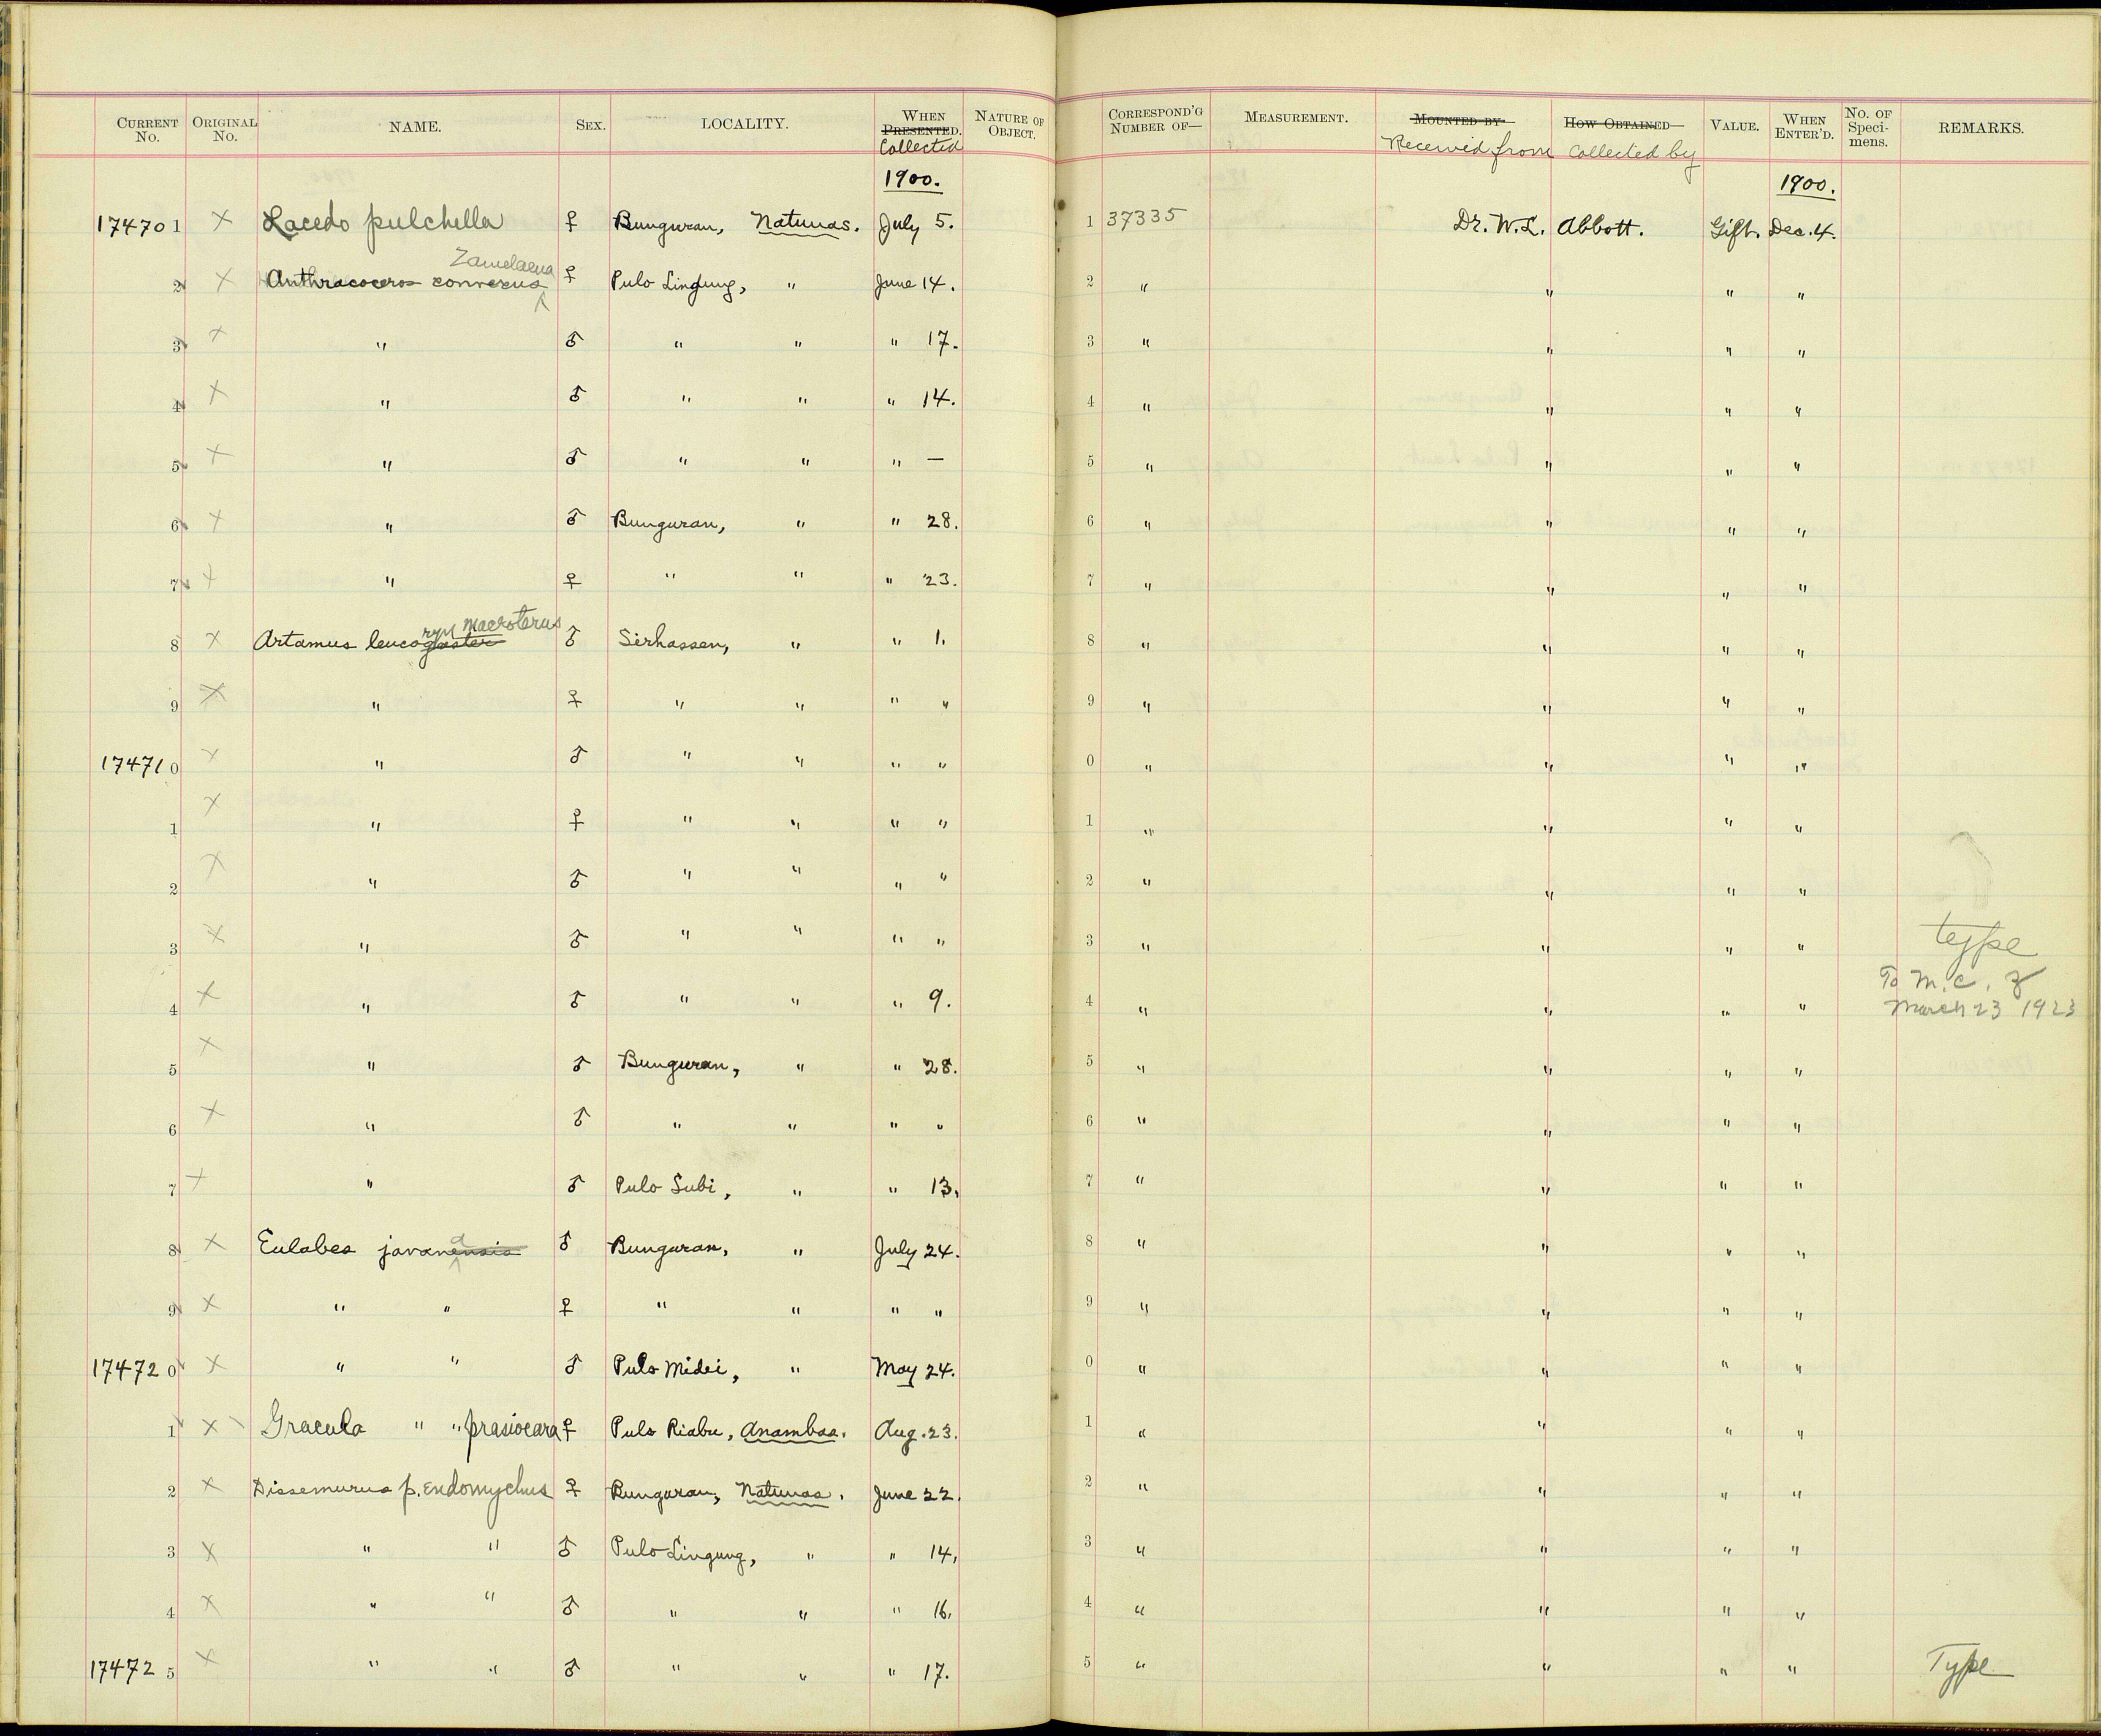 CURRENT No. ORIGINAL No. NAME. SEX. LOCALITY. WHEN PRESENTED. Collected NATURE OF OBJECT. CORRESPOND'G NUMBER OF— MEASUREMENT. MOUNTED BY Received from HOW OBTAINED Collected by VALUE. WHEN ENTER'D. No. OF Specimens. REMARKS.
1900. 1900.
174701 X Lacedo pulchella ♀ Bunguran, Natunas. July 5. 1 37335 Dr. W. L. Abbott. Gift. Dec. 4.
2 X Anthracoceros convexus ♀ Pulo Lingung, " June 14. 2 " " " "
3 X " ♂ " " " 17. 3 " " " "
4 X " ♂ " " " 14. 4 " " " "
5 X " ♂ " " " — 5 " " " "
6 X " ♂ Bunguran, " " 28. 6 " " " "
7 X " ♀ " " " 23. 7 " " " "
8 X Artamus leucogaster ryn macroterus ♂ Sirhassen, " " 1. 8 " " " "
9 X " ♀ " " " " 9 " " " "
174710 X " ♂ " " " " 0 " " " "
1 X " ♀ " " " " 1 " " " "
2 X " ♂ " " " " 2 " " " "
3 X " ♂ " " " " 3 " " " " type
4 X " ♂ " " " 9. 4 " " " " To M. C. Z March 23 1923
5 X " ♂ Bunguran, " " 28. 5 " " " "
6 X " ♂ " " " " 6 " " " "
7 X " ♂ Pulo Subi, " " 13. 7 " " " "
8 X Eulabes javanensis a ♂ Bunguran, " July 24. 8 " " " "
9 X " " ♀ " " " " 9 " " " "
174720 X " " ♂ Pulo Midei, " May 24. 0 " " " "
1 X Gracula " " prasiocara ♀ Pulo Riabu, Anambas. Aug. 23. 1 " " " "
2 X Dissemurus p. endomychus ♀ Bunguran, Natunas. June 22. 2 " " " "
3 X " " ♂ Pulo Lingung, " " 14. 3 " " " "
4 X " " ♂ " " " 16. 4 " " " "
174725 X " " ♂ " " " 17. 5 " " " " Type